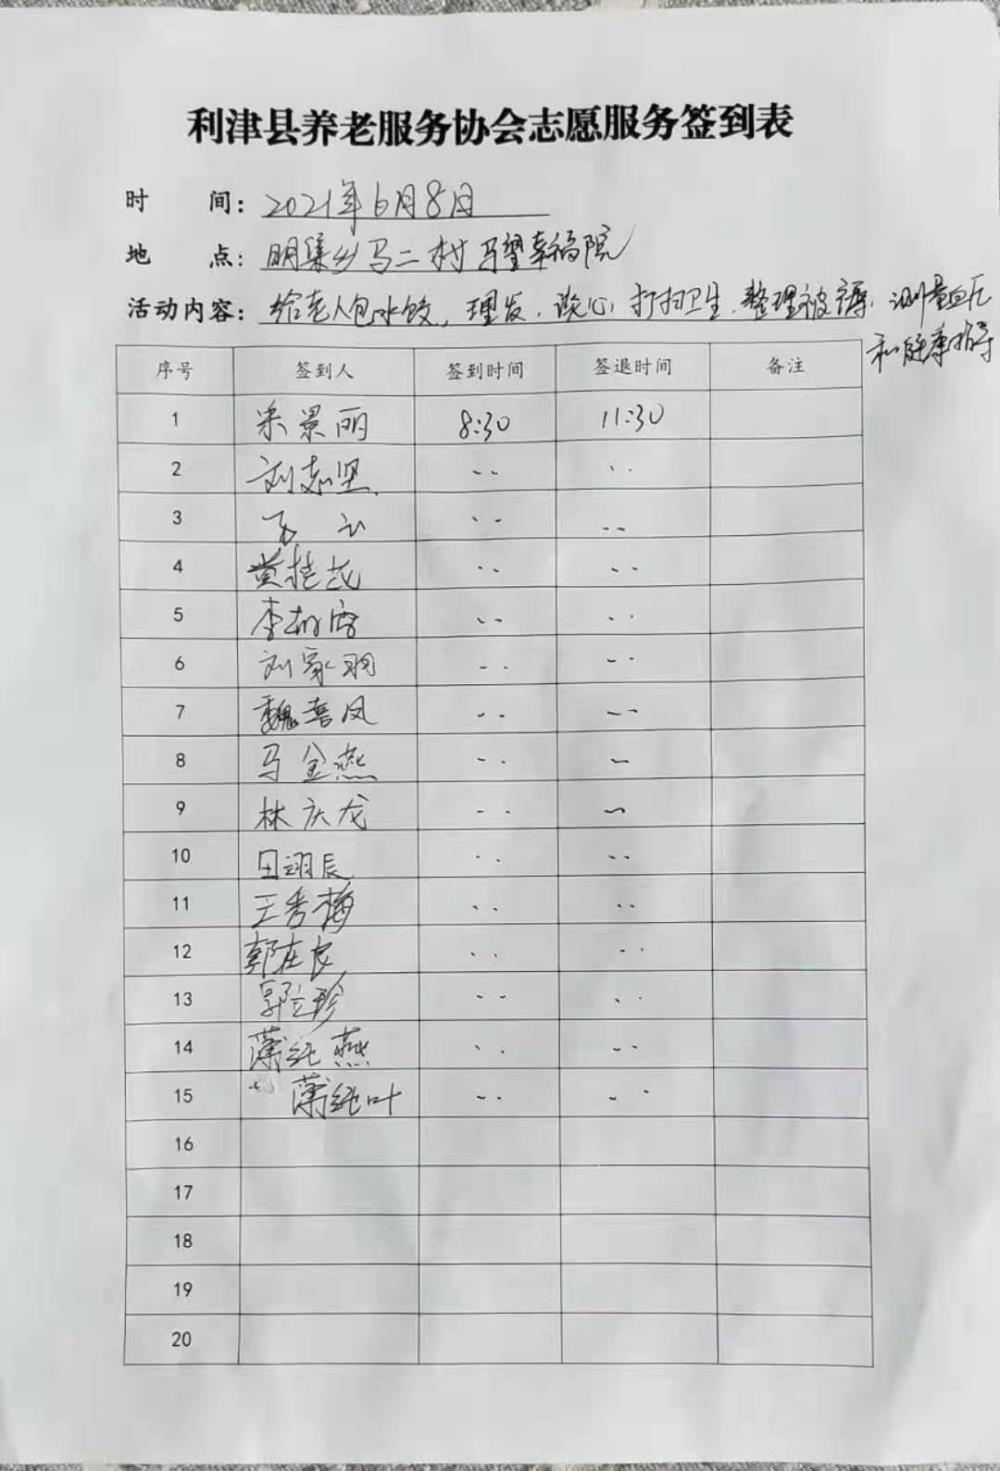 利津县养老服务协会志愿服务签到表
时 间: 2021年6月8日
地 点: 明集乡马二村马望幸福院
活动内容: 给老人包水饺, 理发. 谈心, 打扫卫生. 整理被褥, 测量血压
和健康指导
序号 签到人 签到时间 签退时间 备注
1 景丽 8:30 11:30
2 刘志坚 -- --
3 -- --
4 黄桂花 -- --
5 李 -- --
6 刘家羽 -- --
7 魏喜凤 -- --
8 马金燕 -- --
9 林庆龙 -- --
10 田翊辰 -- --
11 王秀梅 -- --
12 郭在良 -- --
13 郭立珍 -- --
14 薄纯燕 -- --
15 薄纯叶 -- --
16
17
18
19
20